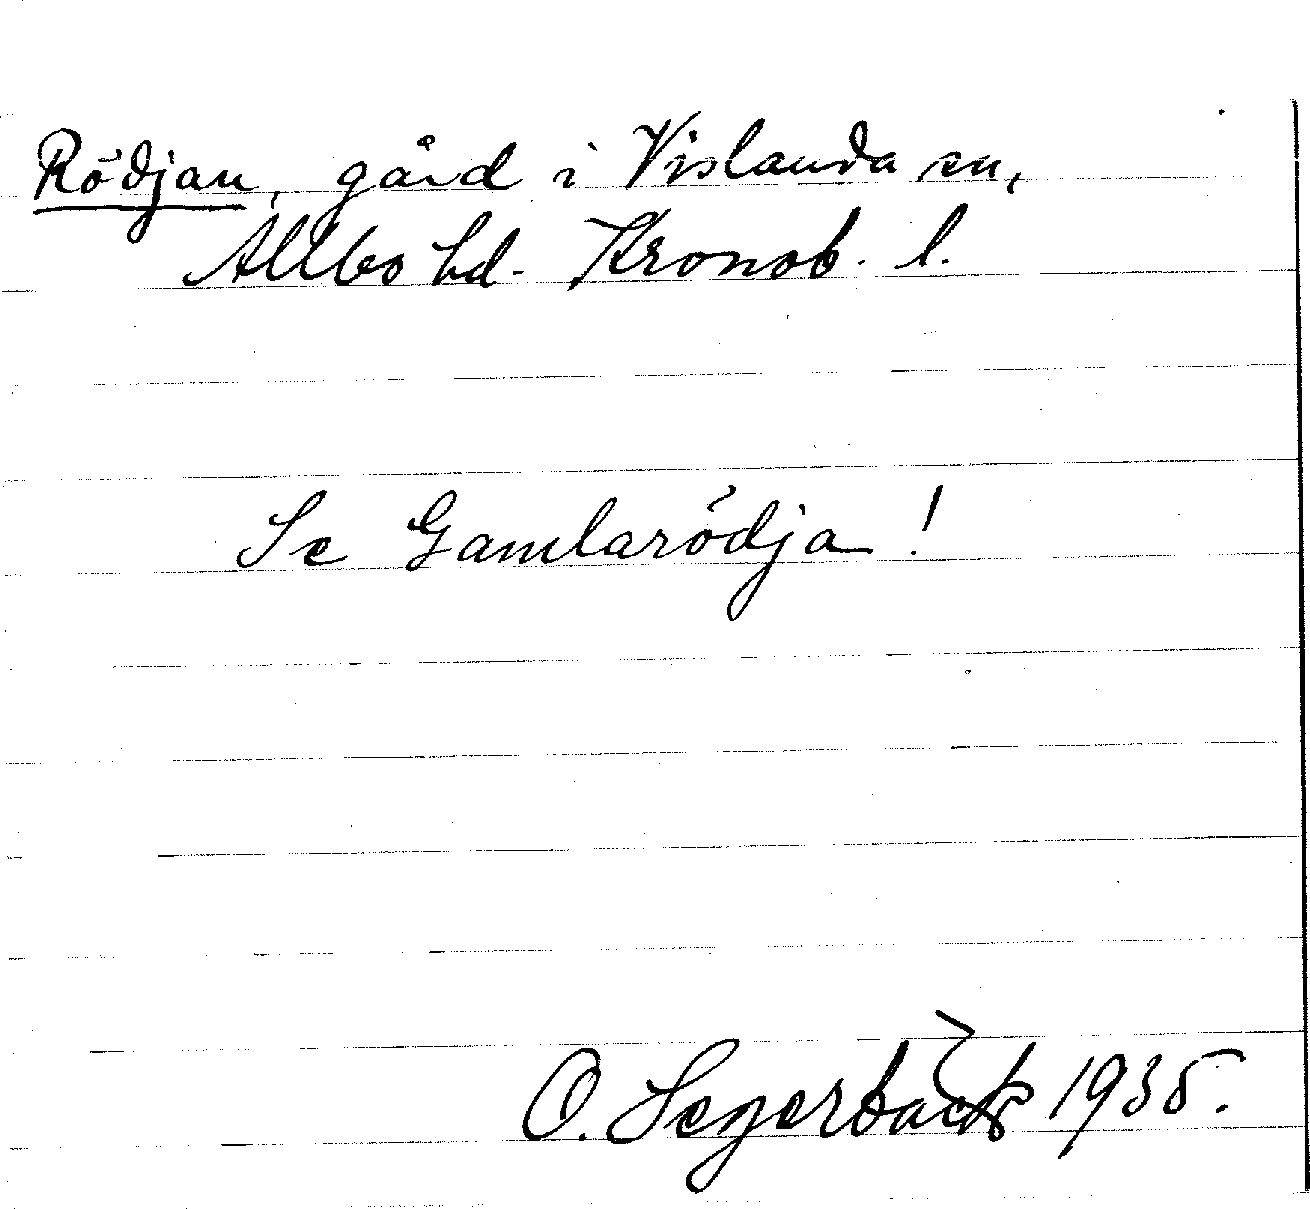 Rödjan, gård i Vislanda sn,
Allbo hd. Kronob. l.
Se Gamlarödja!
O. Segerbäck 1935.